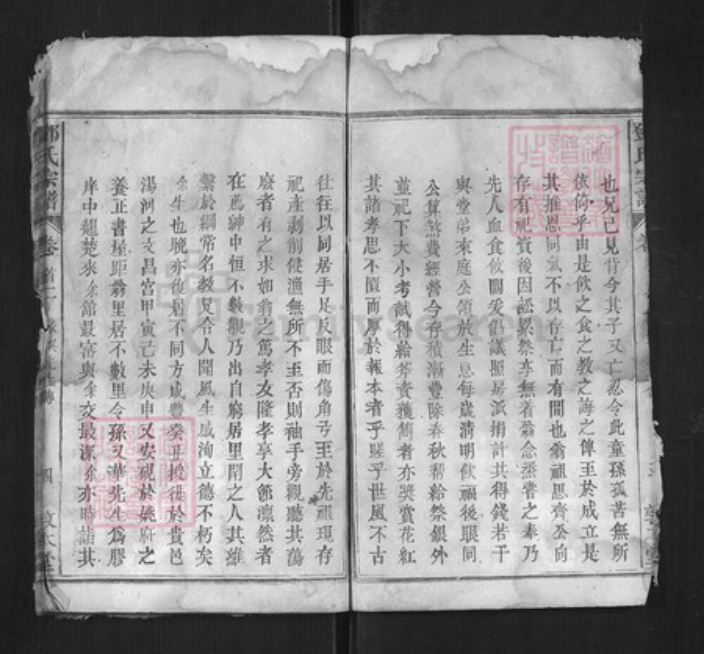 也兄已見背今其子又亡忍令此童孫孤苦無所
依倚乎由是飲之食之教之誨之俾至於成立是
其推恩同氣不以存亡而有間也翁祖思齊公向
存有祀資後因訟累祭享無着翁念烝嘗之奉乃
先人血食攸關爰倡議照房派捐計共得錢若干
與堂弟東庭公領放生息每歲清明伙禰後眼同
公算無費經營今存積漸豐除春秋醑給祭銀外
並祀下大小考試得給斧資獲雋者亦獎賞花紅
其諸孝思不匱而厚於報本者乎嗟乎世風不古
往往以同居手足反眼而傷角弓至於先祖現存
祀產剥削侵漁無所不至否則袖手旁觀聽其蕩
廢者有之求如翁之篤孝友隆孝享大節凛然者
在薦紳中恒不數覯乃出自窮居里閈之人其維
繫於綱常名教足令人聞風生感洵立德不朽矣
余生也晚亦復居不同方咸豐癸丑授徒於貴邑
湯河之文昌宮甲寅己未庚申又安硯於姚府之
養正書屋距翁里居不數里令孫又華先生為膠
庠中翹楚來余館最審與余交最深余亦時詣其
鄧氏宗譜
卷首二
四
敦本堂
FamilySearch